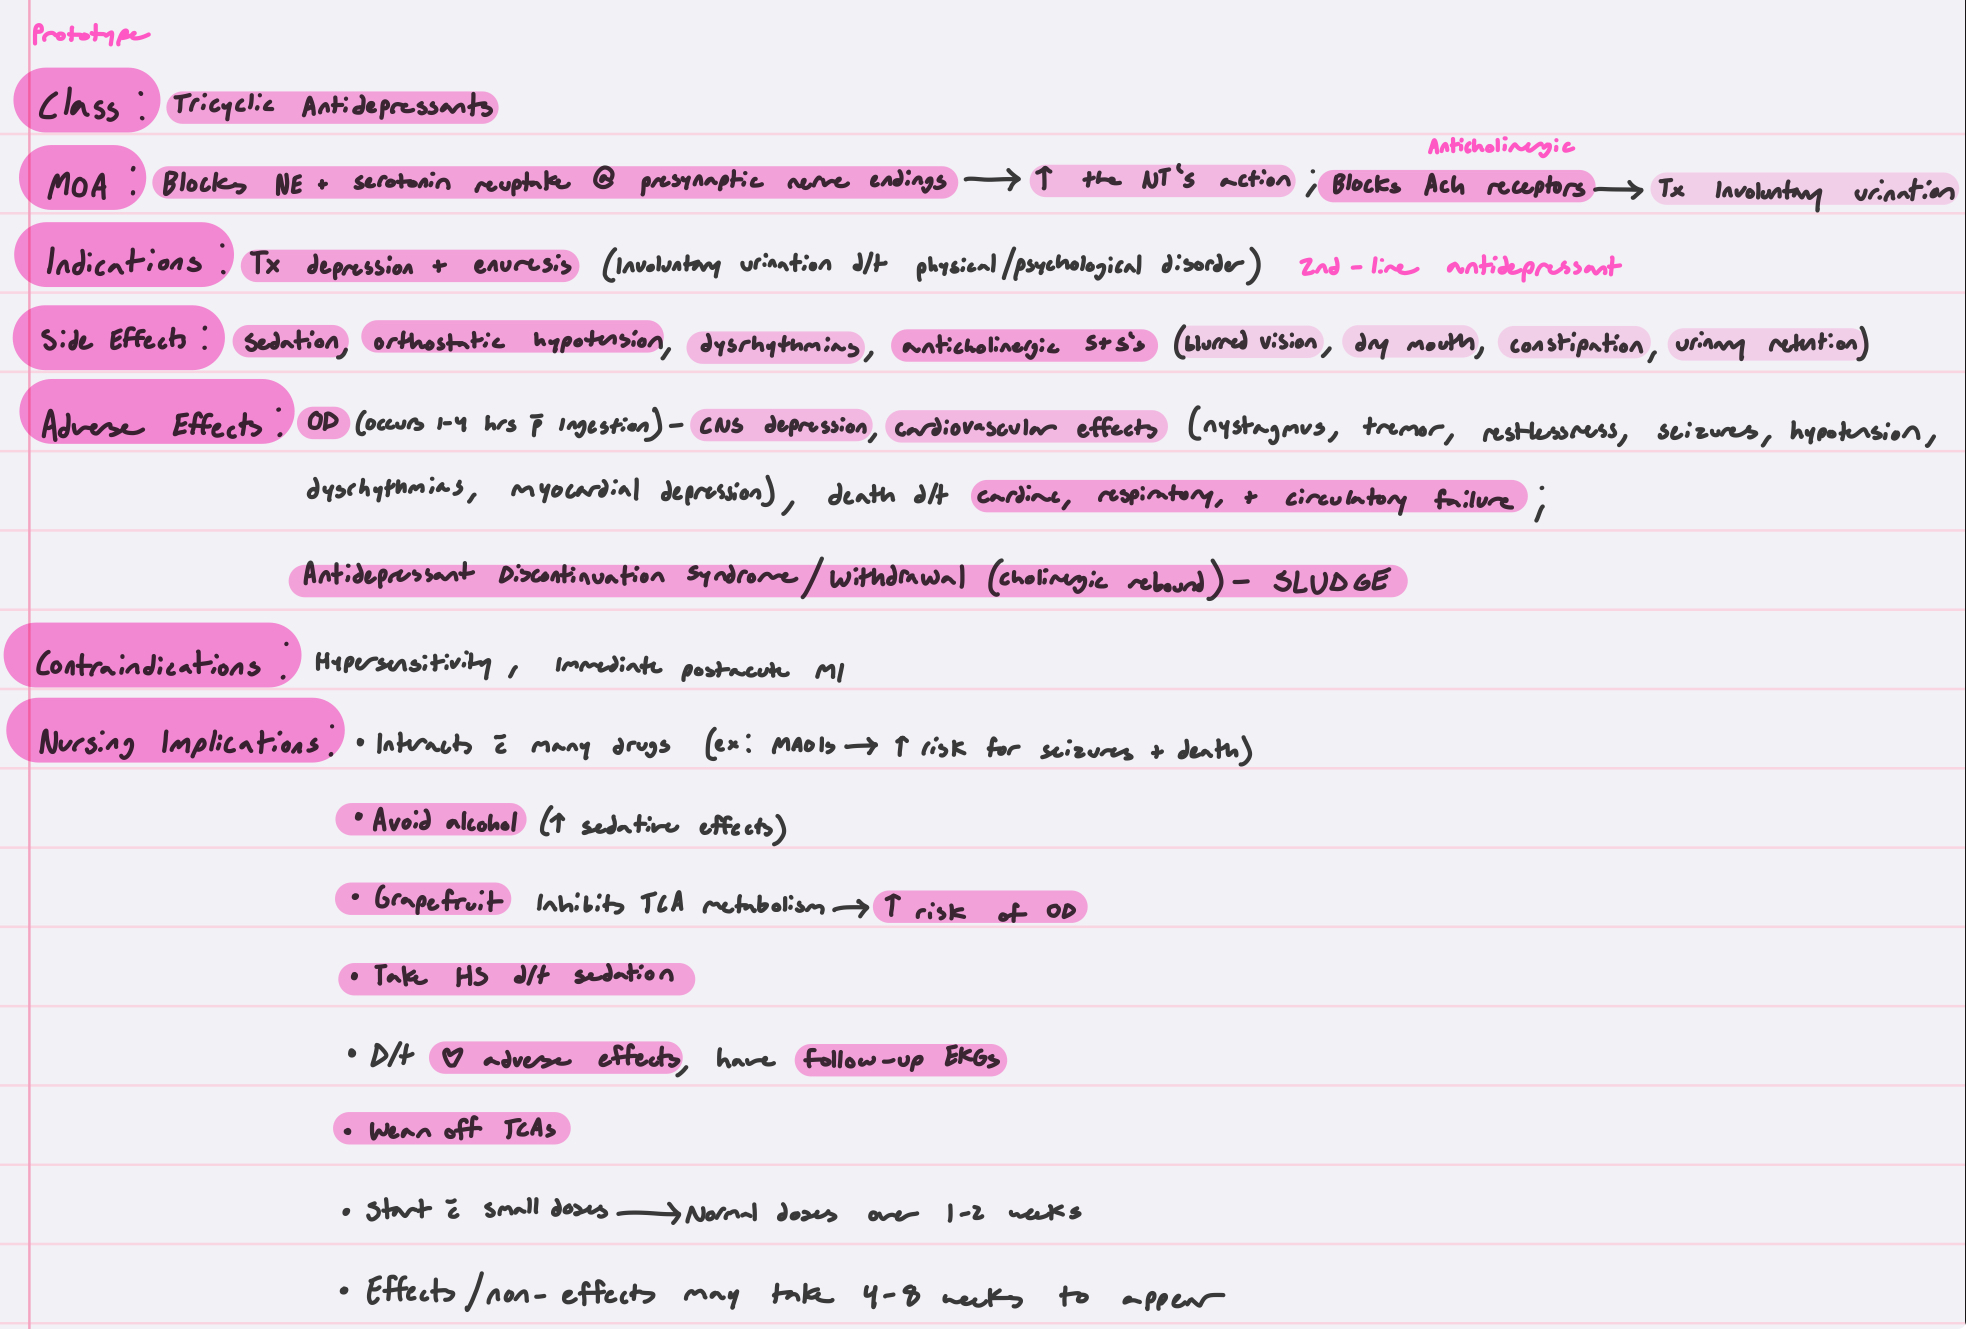 Prototype
Class: Tricyclic Antidepressants
Anticholinergic
MOA: Blocks NE + serotonin reuptake @ presynaptic nerve endings → ↑ the NT's action ; Blocks Ach receptors → Tx Involuntary urination
Indications: Tx depression + enuresis (Involuntary urination d/t physical/psychological disorder) 2nd-line antidepressant
Side Effects: sedation, orthostatic hypotension, dysrhythmias, anticholinergic S+S's (blurred vision, dry mouth, constipation, urinary retention)
Adverse Effects: OD (occurs 1-4 hrs p̄ Ingestion) - CNS depression, cardiovascular effects (nystagmus, tremor, restlessness, seizures, hypotension,
dysrhythmias, myocardial depression), death d/t cardiac, respiratory, + circulatory failure ;
Antidepressant Discontinuation Syndrome/Withdrawal (cholinergic rebound) - SLUDGE
Contraindications: Hypersensitivity, Immediate postacute MI
Nursing Implications: • Interacts c̄ many drugs (ex: MAOIs → ↑ risk for seizures + death)
• Avoid alcohol (↑ sedative effects)
• Grapefruit Inhibits TCA metabolism → ↑ risk of OD
• Take HS d/t sedation
• D/t ♡ adverse effects, have follow-up EKGs
• Wean off TCAs
• Start c̄ small doses → Normal doses over 1-2 weeks
• Effects/non-effects may take 4-8 weeks to appear